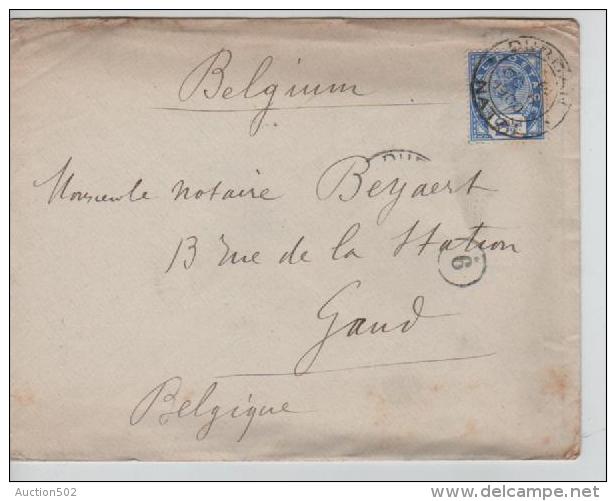 Belgium
DURBAN
NATAL
DUR
Monsieur le notaire Beyaert
13 rue de la Station
6
Gand
Belgique
Auction502
www.delcampe.net